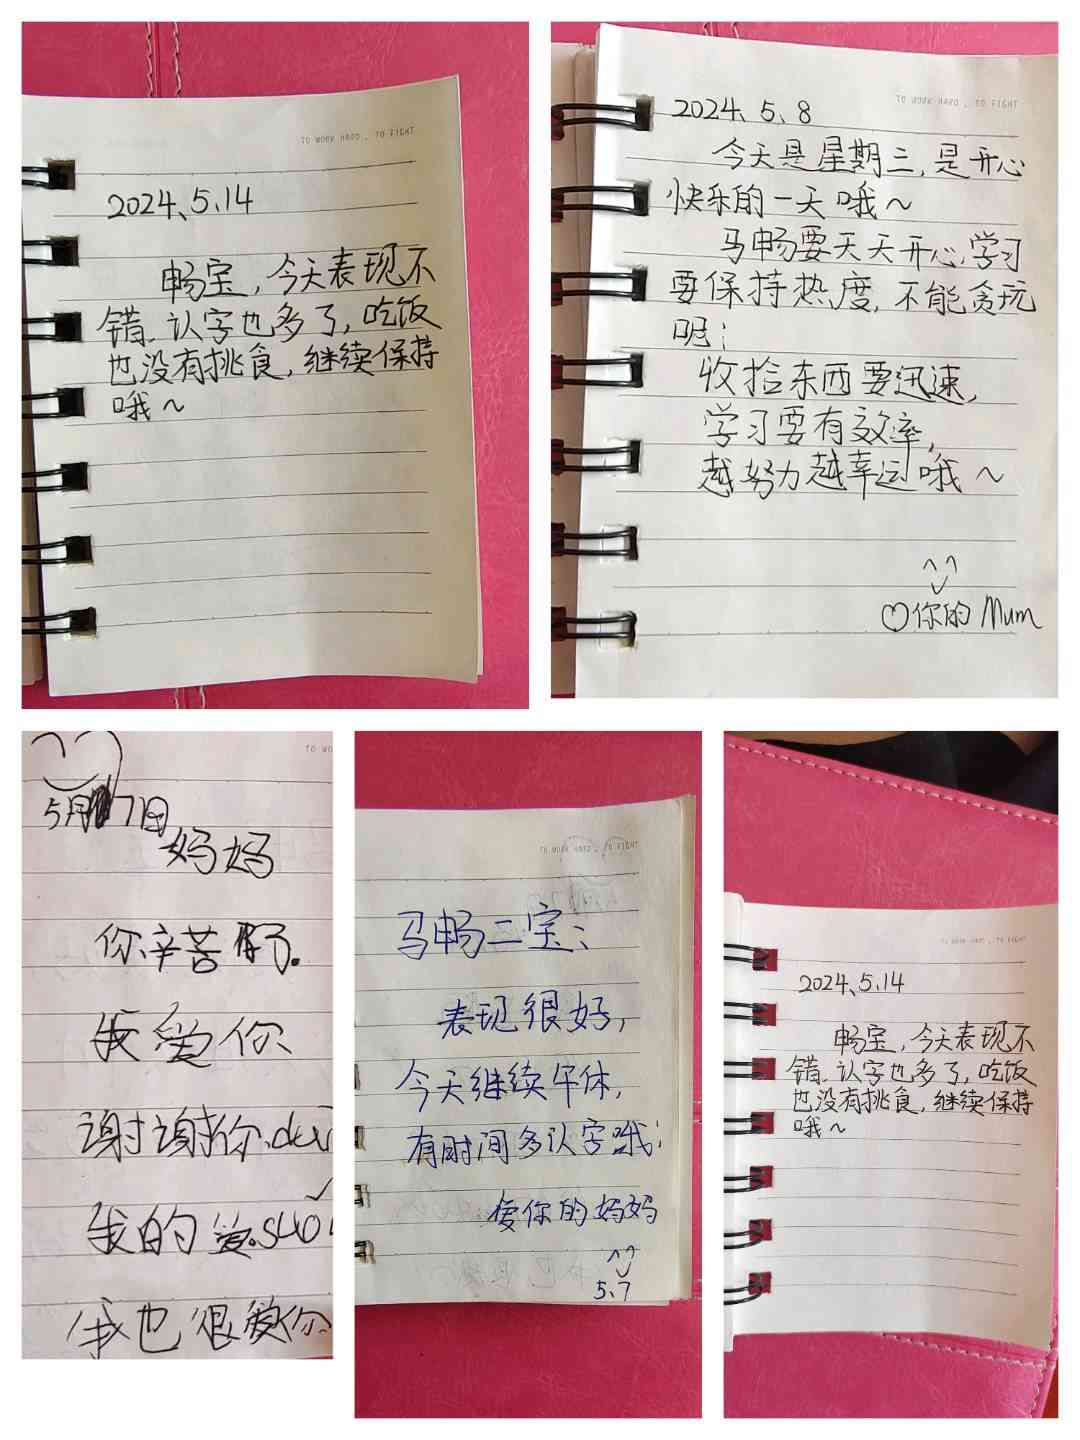 2024、5、14
畅宝，今天表现不
错，认字也多了，吃饭
也没有挑食，继续保持
哦～
2024、5、8
今天是星期三，是开心
快乐的一天哦～
马畅要天天开心，学习
要保持热度，不能贪玩
呢；
收拾东西要迅速，
学习要有效率，
越努力越幸运哦～
♡你的 Mum
5月7日
妈妈
你辛苦了。
我爱你、
谢谢你、dui
我的爱、suo
我也很爱你、
马畅二宝：
表现很好，
今天继续午休，
有时间多认字哦；
爱你的妈妈
5、7
2024、5、14
畅宝，今天表现不
错，认字也多了，吃饭
也没有挑食，继续保持
哦～